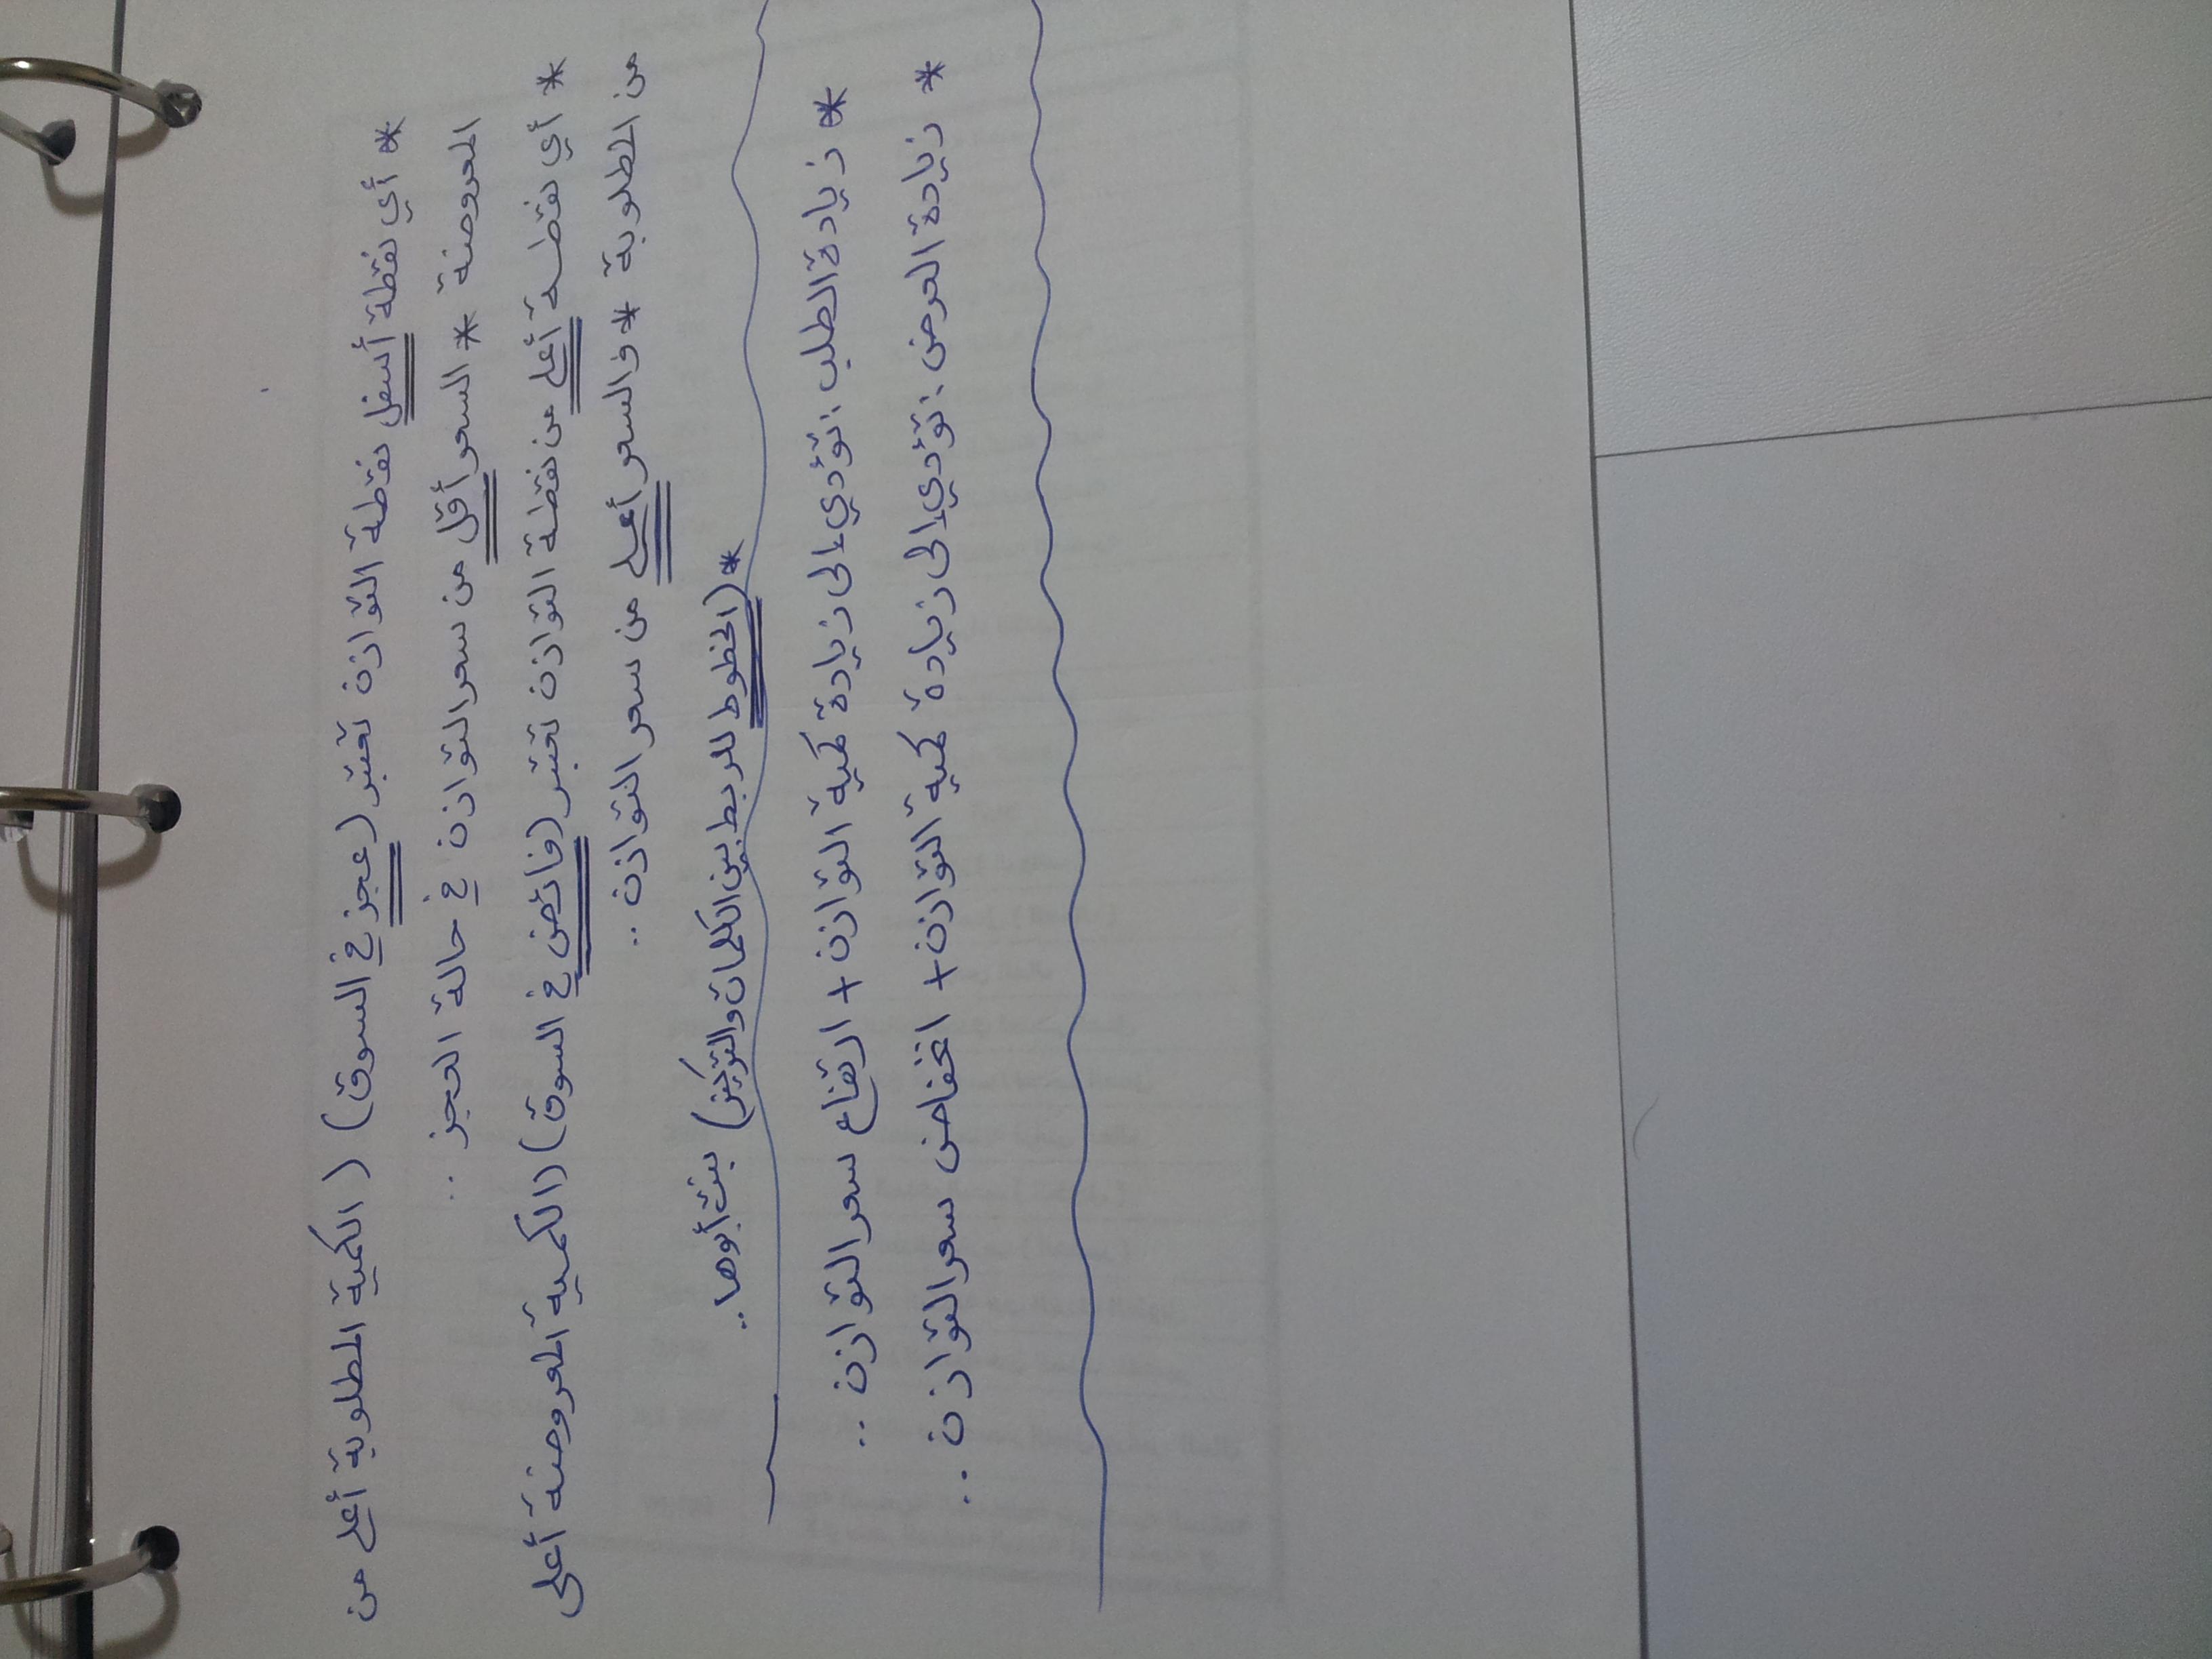 * أي نقطة أسفل نقطة التوازن تعتبر (عجز في السوق) (الكمية المطلوبة أعلى من
المعروضة * السعر أقل من سعر التوازن في حالة العجز ..
* أي نقطة أعلى من نقطة التوازن تعتبر (فائض في السوق) (الكمية المعروضة أعلى
من المطلوبة * والسعر أعلى من سعر التوازن ..
* (الخطوط للربط بين الكلمات والتركيز) بنت أبوها ..
* زيادة الطلب : تؤدي إلى زيادة كمية التوازن + ارتفاع سعر التوازن ..
* زيادة العرض : تؤدي إلى زيادة كمية التوازن + انخفاض سعر التوازن ..